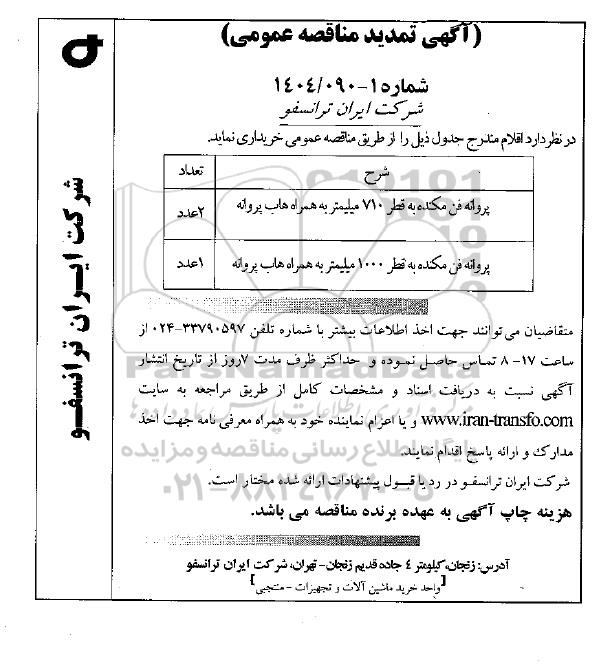 (آگهی تمدید مناقصه عمومی)
شماره ۱-۱۴۰۴/۰۹۰
شرکت ایران ترانسفو
در نظر دارد اقلام مندرج جدول ذیل را از طریق مناقصه عمومی خریداری نماید.
شرح تعداد
پروانه فن مکنده به قطر ۷۱۰ میلیمتر به همراه هاب پروانه ۲عدد
پروانه فن مکنده به قطر ۱۰۰۰ میلیمتر به همراه هاب پروانه ۱عدد
متقاضیان می توانند جهت اخذ اطلاعات بیشتر با شماره تلفن ۳۳۷۹۰۵۹۷-۰۲۴ از
ساعت ۱۷- ۸ تماس حاصل نموده و حداکثر ظرف مدت ۷روز از تاریخ انتشار
آگهی نسبت به دریافت اسناد و مشخصات کامل از طریق مراجعه به سایت
www.iran-transfo.com و یا اعزام نماینده خود به همراه معرفی نامه جهت اخذ
مدارک و ارائه پاسخ اقدام نمایند.
شرکت ایران ترانسفو در رد یا قبول پیشنهادات ارائه شده مختار است.
هزینه چاپ آگهی به عهده برنده مناقصه می باشد.
آدرس: زنجان، کیلومتر ۴ جاده قدیم زنجان- تهران، شرکت ایران ترانسفو
[واحد خرید ماشین آلات و تجهیزات - منتجبی]
شرکت ایـران ترانسفـو
ParsNamadData
پایگاه اطلاع رسانی مناقصه و مزایده
۰۲۱-۸۸۳۴۹۶۷۰-۵